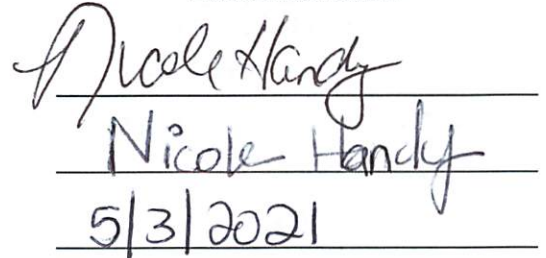 Nicole Handy
Nicole Handy
5/3/2021